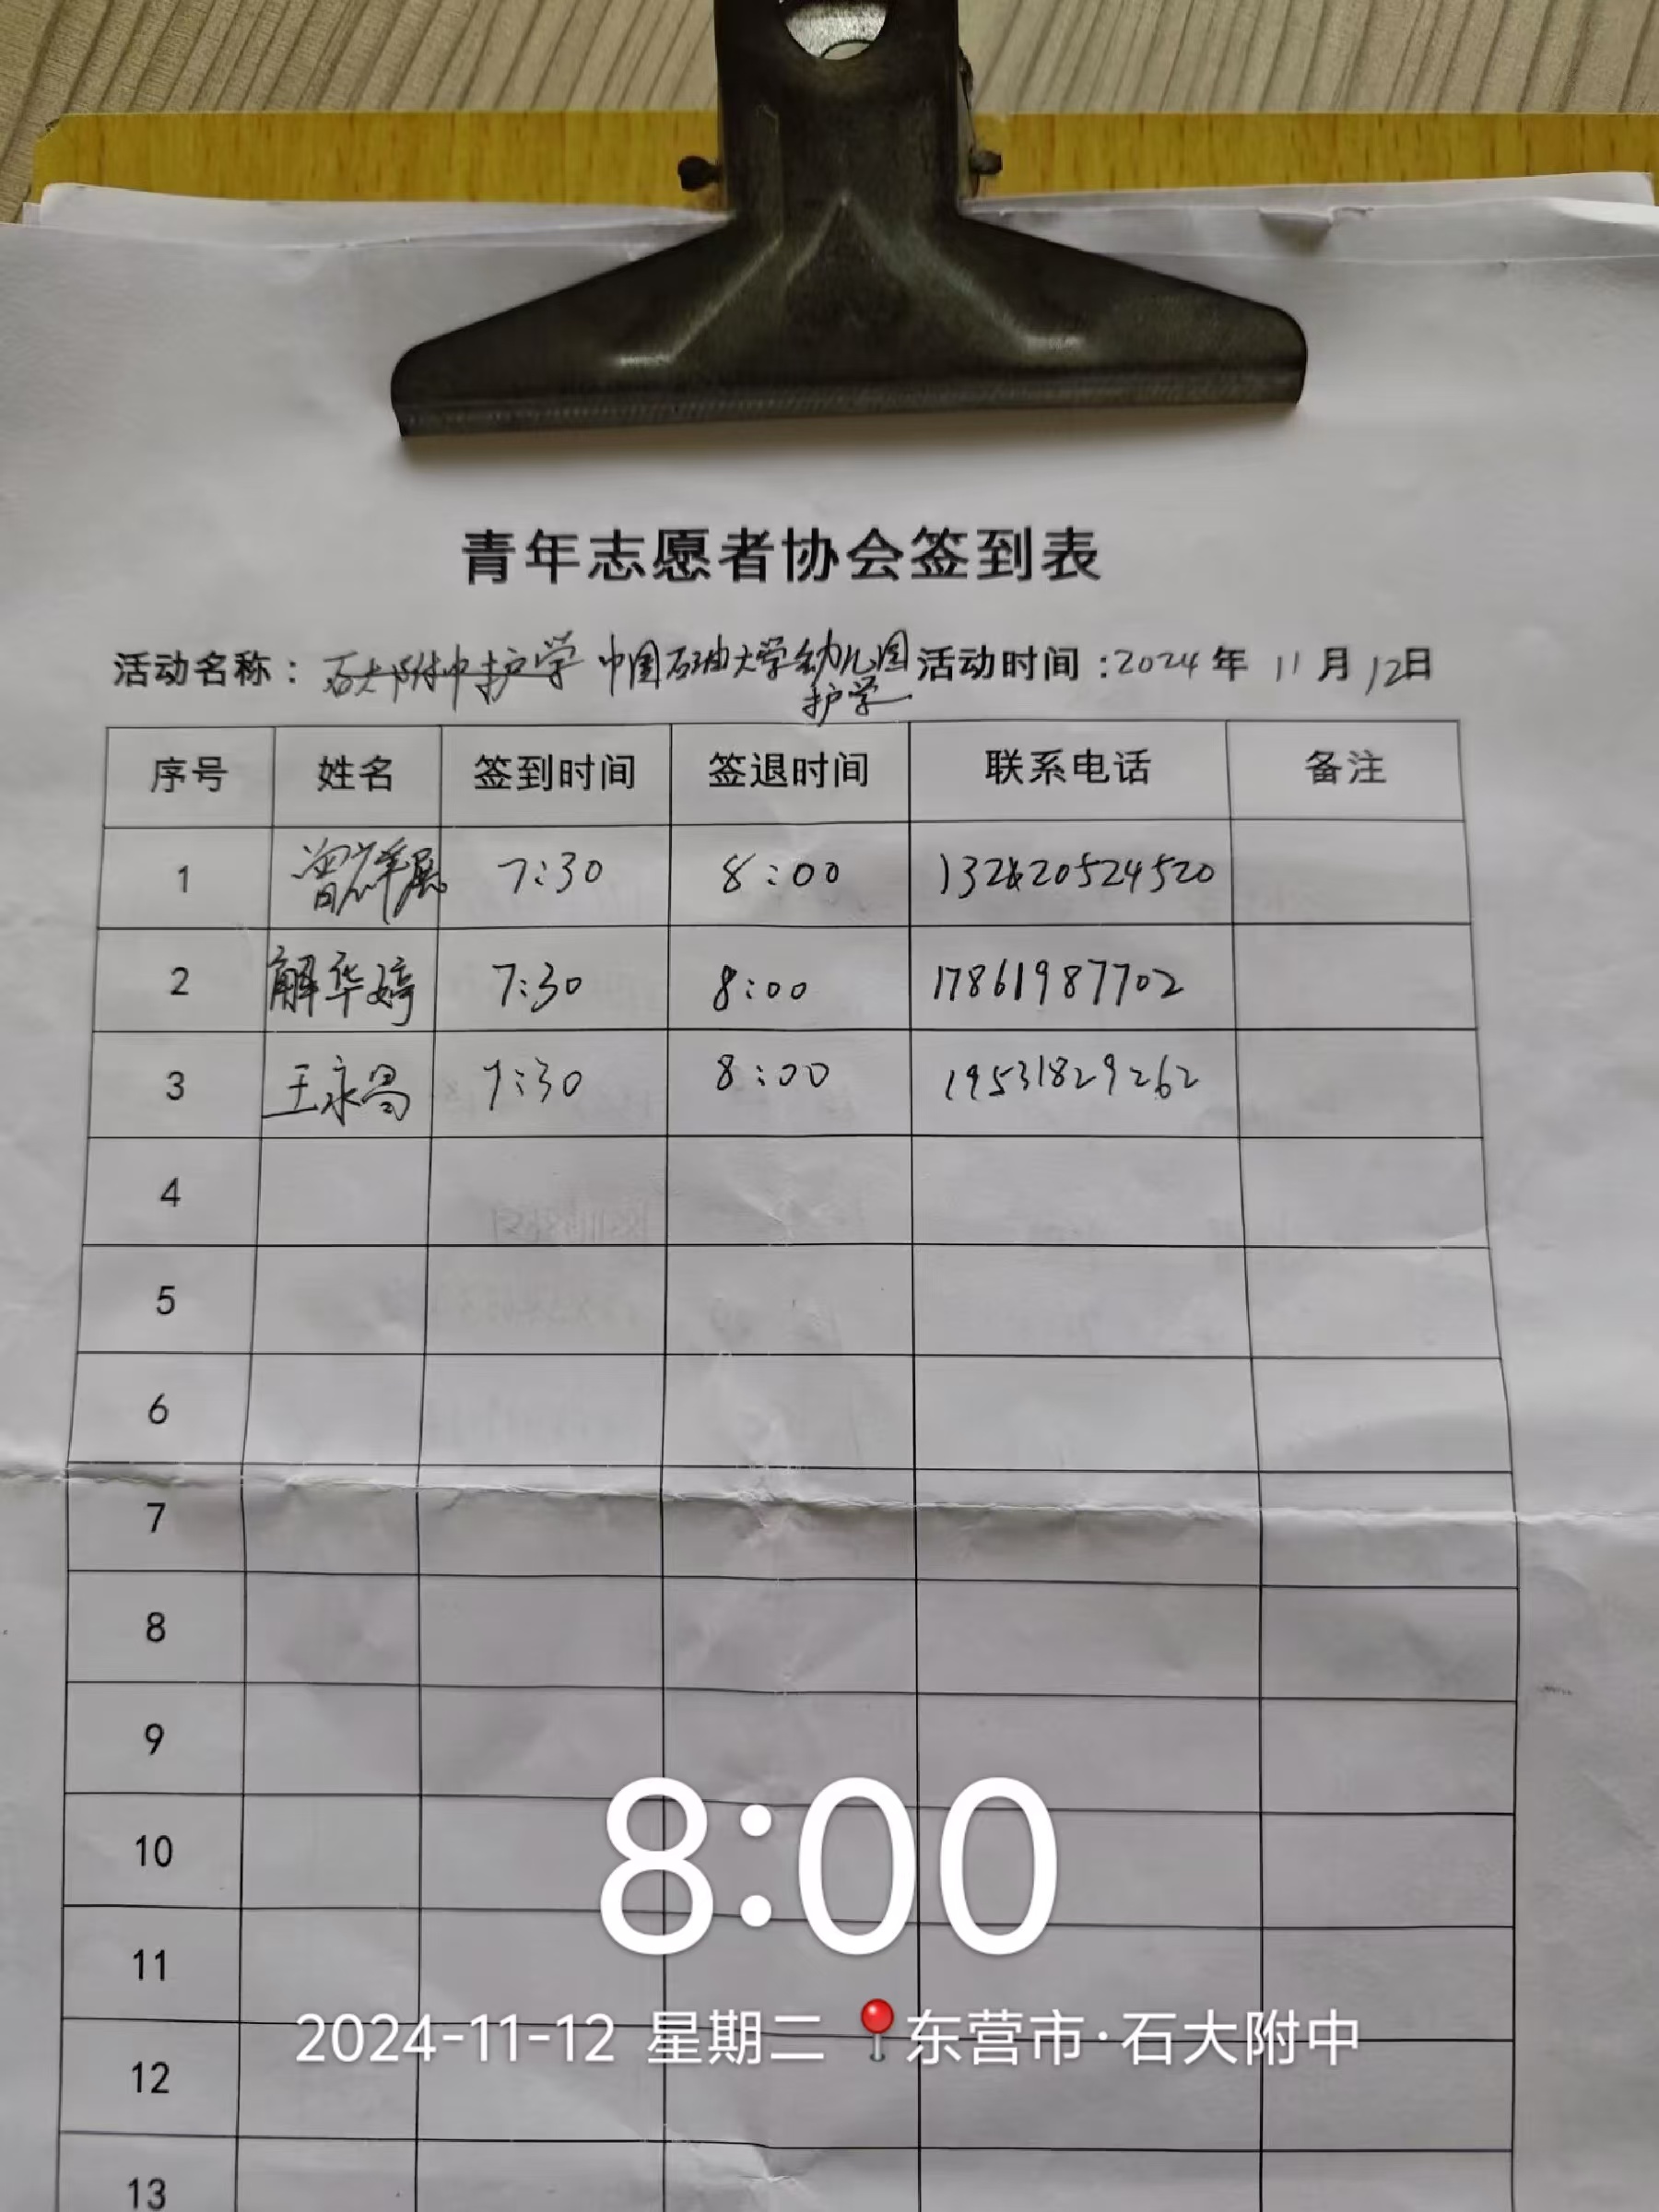 青年志愿者协会签到表
活动名称：石大附中护学 中国石油大学幼儿园 活动时间：2024年 11月 12日
护学
序号 姓名 签到时间 签退时间 联系电话 备注
1 7:30 8:00
2 解华婷 7:30 8:00 17861987702
3 王永昌 7:30 8:00 19531829262
4
5
6
7
8
9
10
11
12
13
8:00
2024-11-12 星期二 📍东营市·石大附中